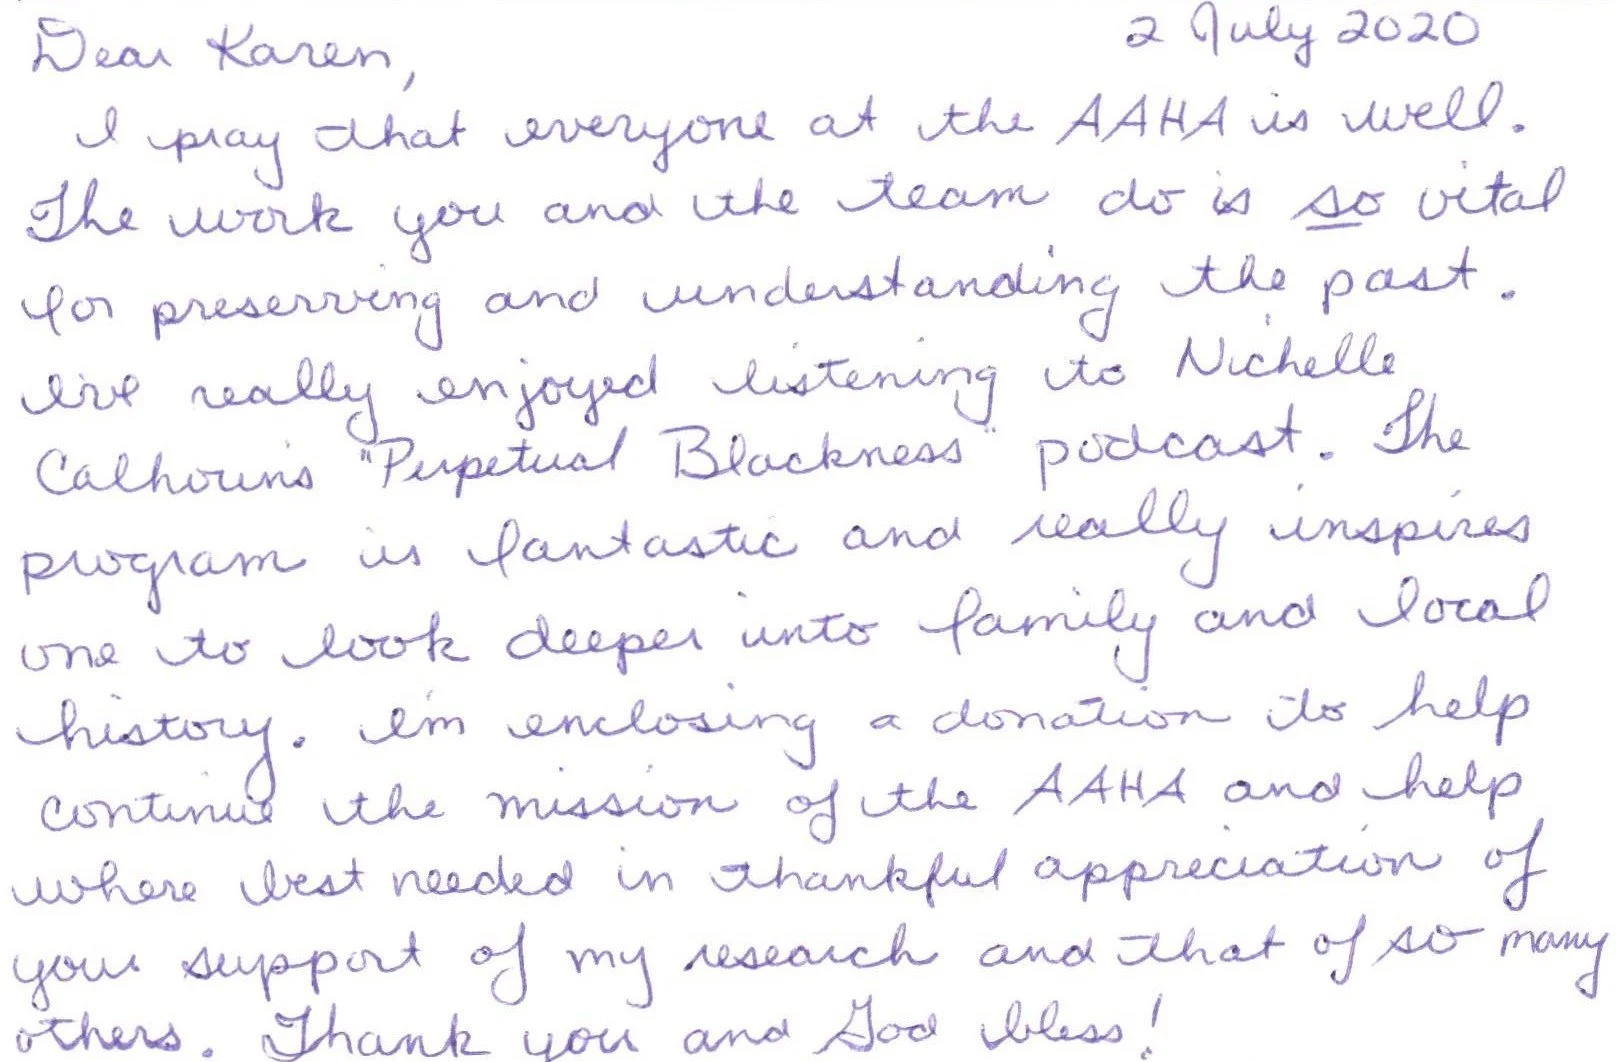 2 July 2020
Dear Karen,
I pray that everyone at the AAHA is well.
The work you and the team do is so vital
for preserving and understanding the past.
I've really enjoyed listening to Nichelle
Calhoun's "Perpetual Blackness" podcast. The
program is fantastic and really inspires
one to look deeper into family and local
history. I'm enclosing a donation to help
continue the mission of the AAHA and help
where best needed in thankful appreciation of
your support of my research and that of so many
others. Thank you and God bless!